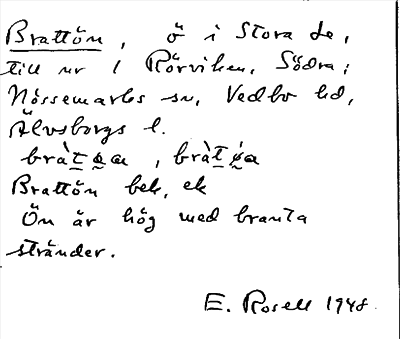 Brattön, ö i Stora Le,
till nr 1 Rörviken, Södra;
Nössemarks sn, Vedbo hd,
Älvsborgs l.
Brattön bek. ek
Ön är hög med branta
stränder.
E. Rosell 1948.